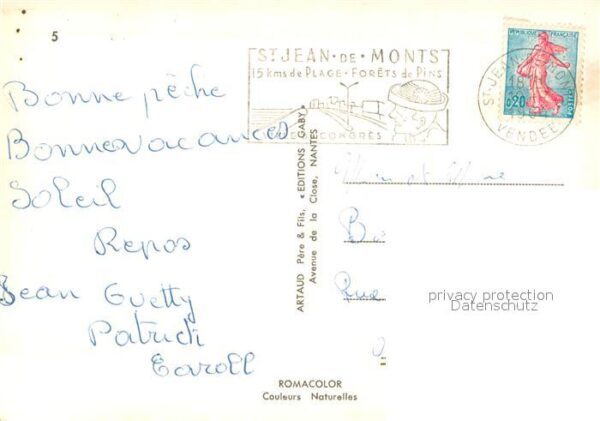 5
ST JEAN · DE · MONTS
15 kms de PLAGE · FORÊTS de PINS
CONGRÈS
ST-JEAN
MONTS
VENDÉE
REPUBLIQUE FRANÇAISE
0,20
POSTES
Bonne pêche
Bonne vacances
Soleil
Repos
Jean Guetty
Patrick
Caroll
ARTAUD Père & Fils, « EDITIONS GABY »
Avenue de la Close, NANTES
et
Rue
privacy protection
Datenschutz
ROMACOLOR
Couleurs Naturelles